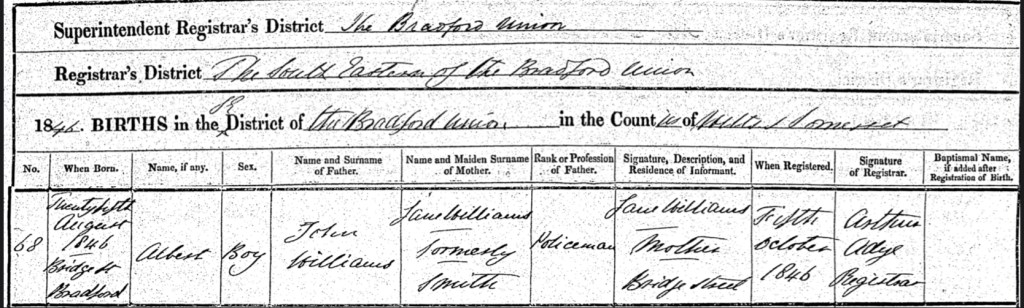 Superintendent Registrar's District The Bradford Union
Registrar's District The South Eastern of the Bradford Union
1846. BIRTHS in the District of the Bradford Union in the Counties of Wilts & Somerset
No. When Born. Name, if any. Sex. Name and Surname of Father. Name and Maiden Surname of Mother. Rank or Profession of Father. Signature, Description, and Residence of Informant. When Registered. Signature of Registrar. Baptismal Name, if added after Registration of Birth.
68
Twenty fifth
August
1846
Bridge St
Bradford
Albert
Boy
John
Williams
Jane Williams
Formerly
Smith
Policeman
Jane Williams
Mother
Bridge Street
Fifth
October
1846
Arthur
Adye
Registrar